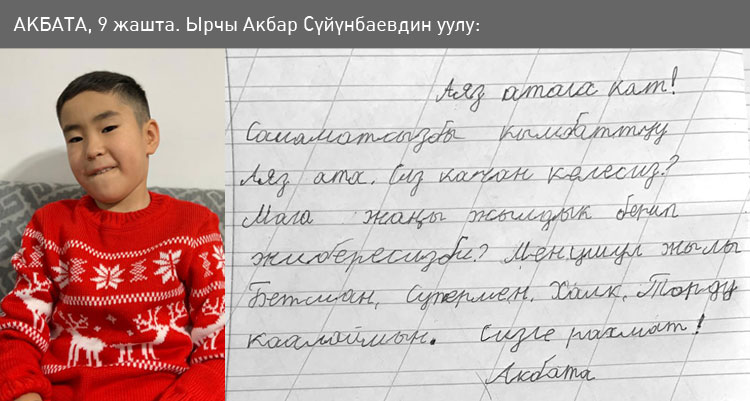 АКБАТА, 9 жашта. Ырчы Акбар Сүйүнбаевдин уулу:
Аяз атага кат!
Саламатсызбы кымбаттуу
Аяз ата. Сиз качан келесиз?
Мага жаңы жылдык берип
жибересизби? Мен ушул жылы
Бетмэн, Супермен, Халк, Торду
каалаймын. Сизге рахмат!
Акбата